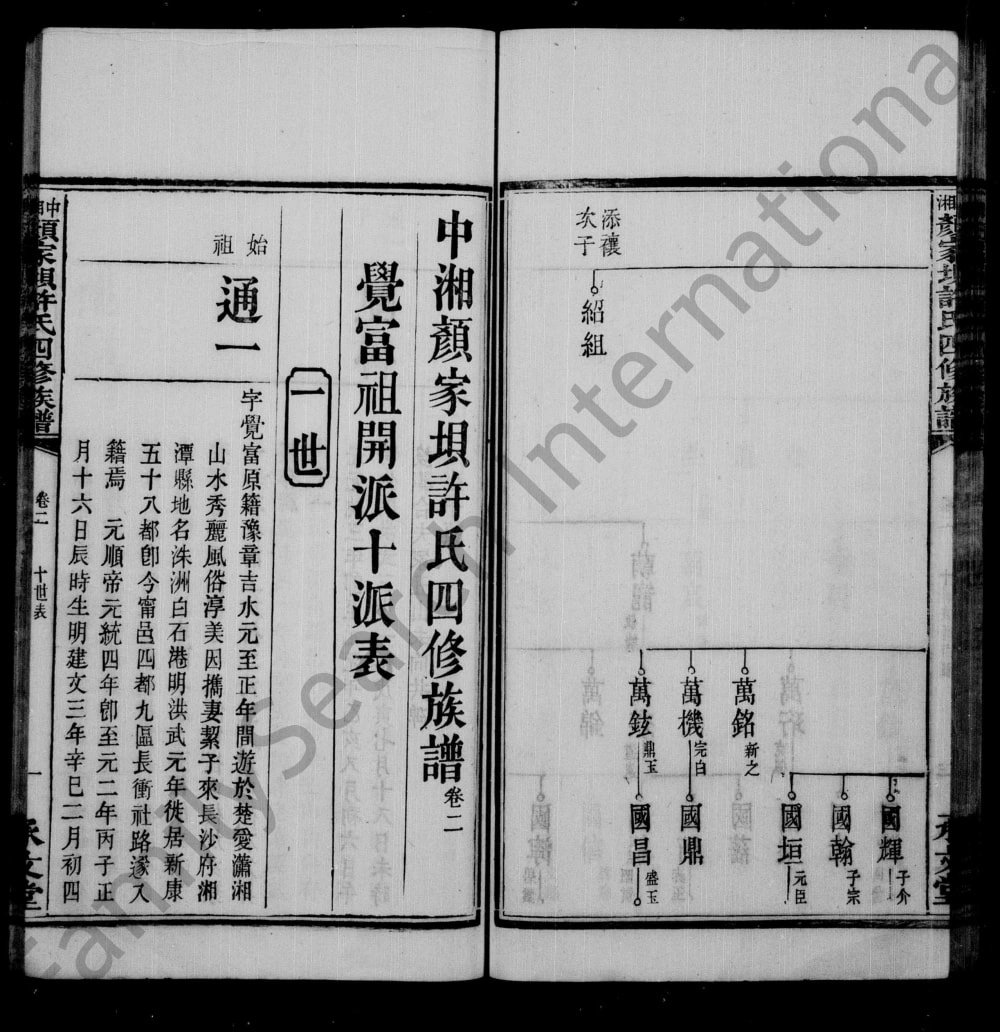 湘顏家垻許氏四修族譜
添禳
次子
紹組
國輝
子介
國翰
子宗
國垣
元臣
萬銘
新之
萬機
完白
國鼎
萬鉉
鼎玉
國昌
盛玉
中湘顏家垻許氏四修族譜卷二
覺富祖開派十派表
一世
始祖
通一
字覺富原籍豫章吉水元至正年間遊於楚愛瀟湘
山水秀麗風俗淳美因攜妻絜子來長沙府湘
潭縣地名洙洲白石港明洪武元年徙居新康
五十八都卽今甯邑四都九區長衝社路遂入
籍焉 元順帝元統四年卽至元二年丙子正
月十六日辰時生明建文三年辛巳二月初四
中湘顏家垻許氏四修族譜
卷二
十世表
一
FamilySearch International